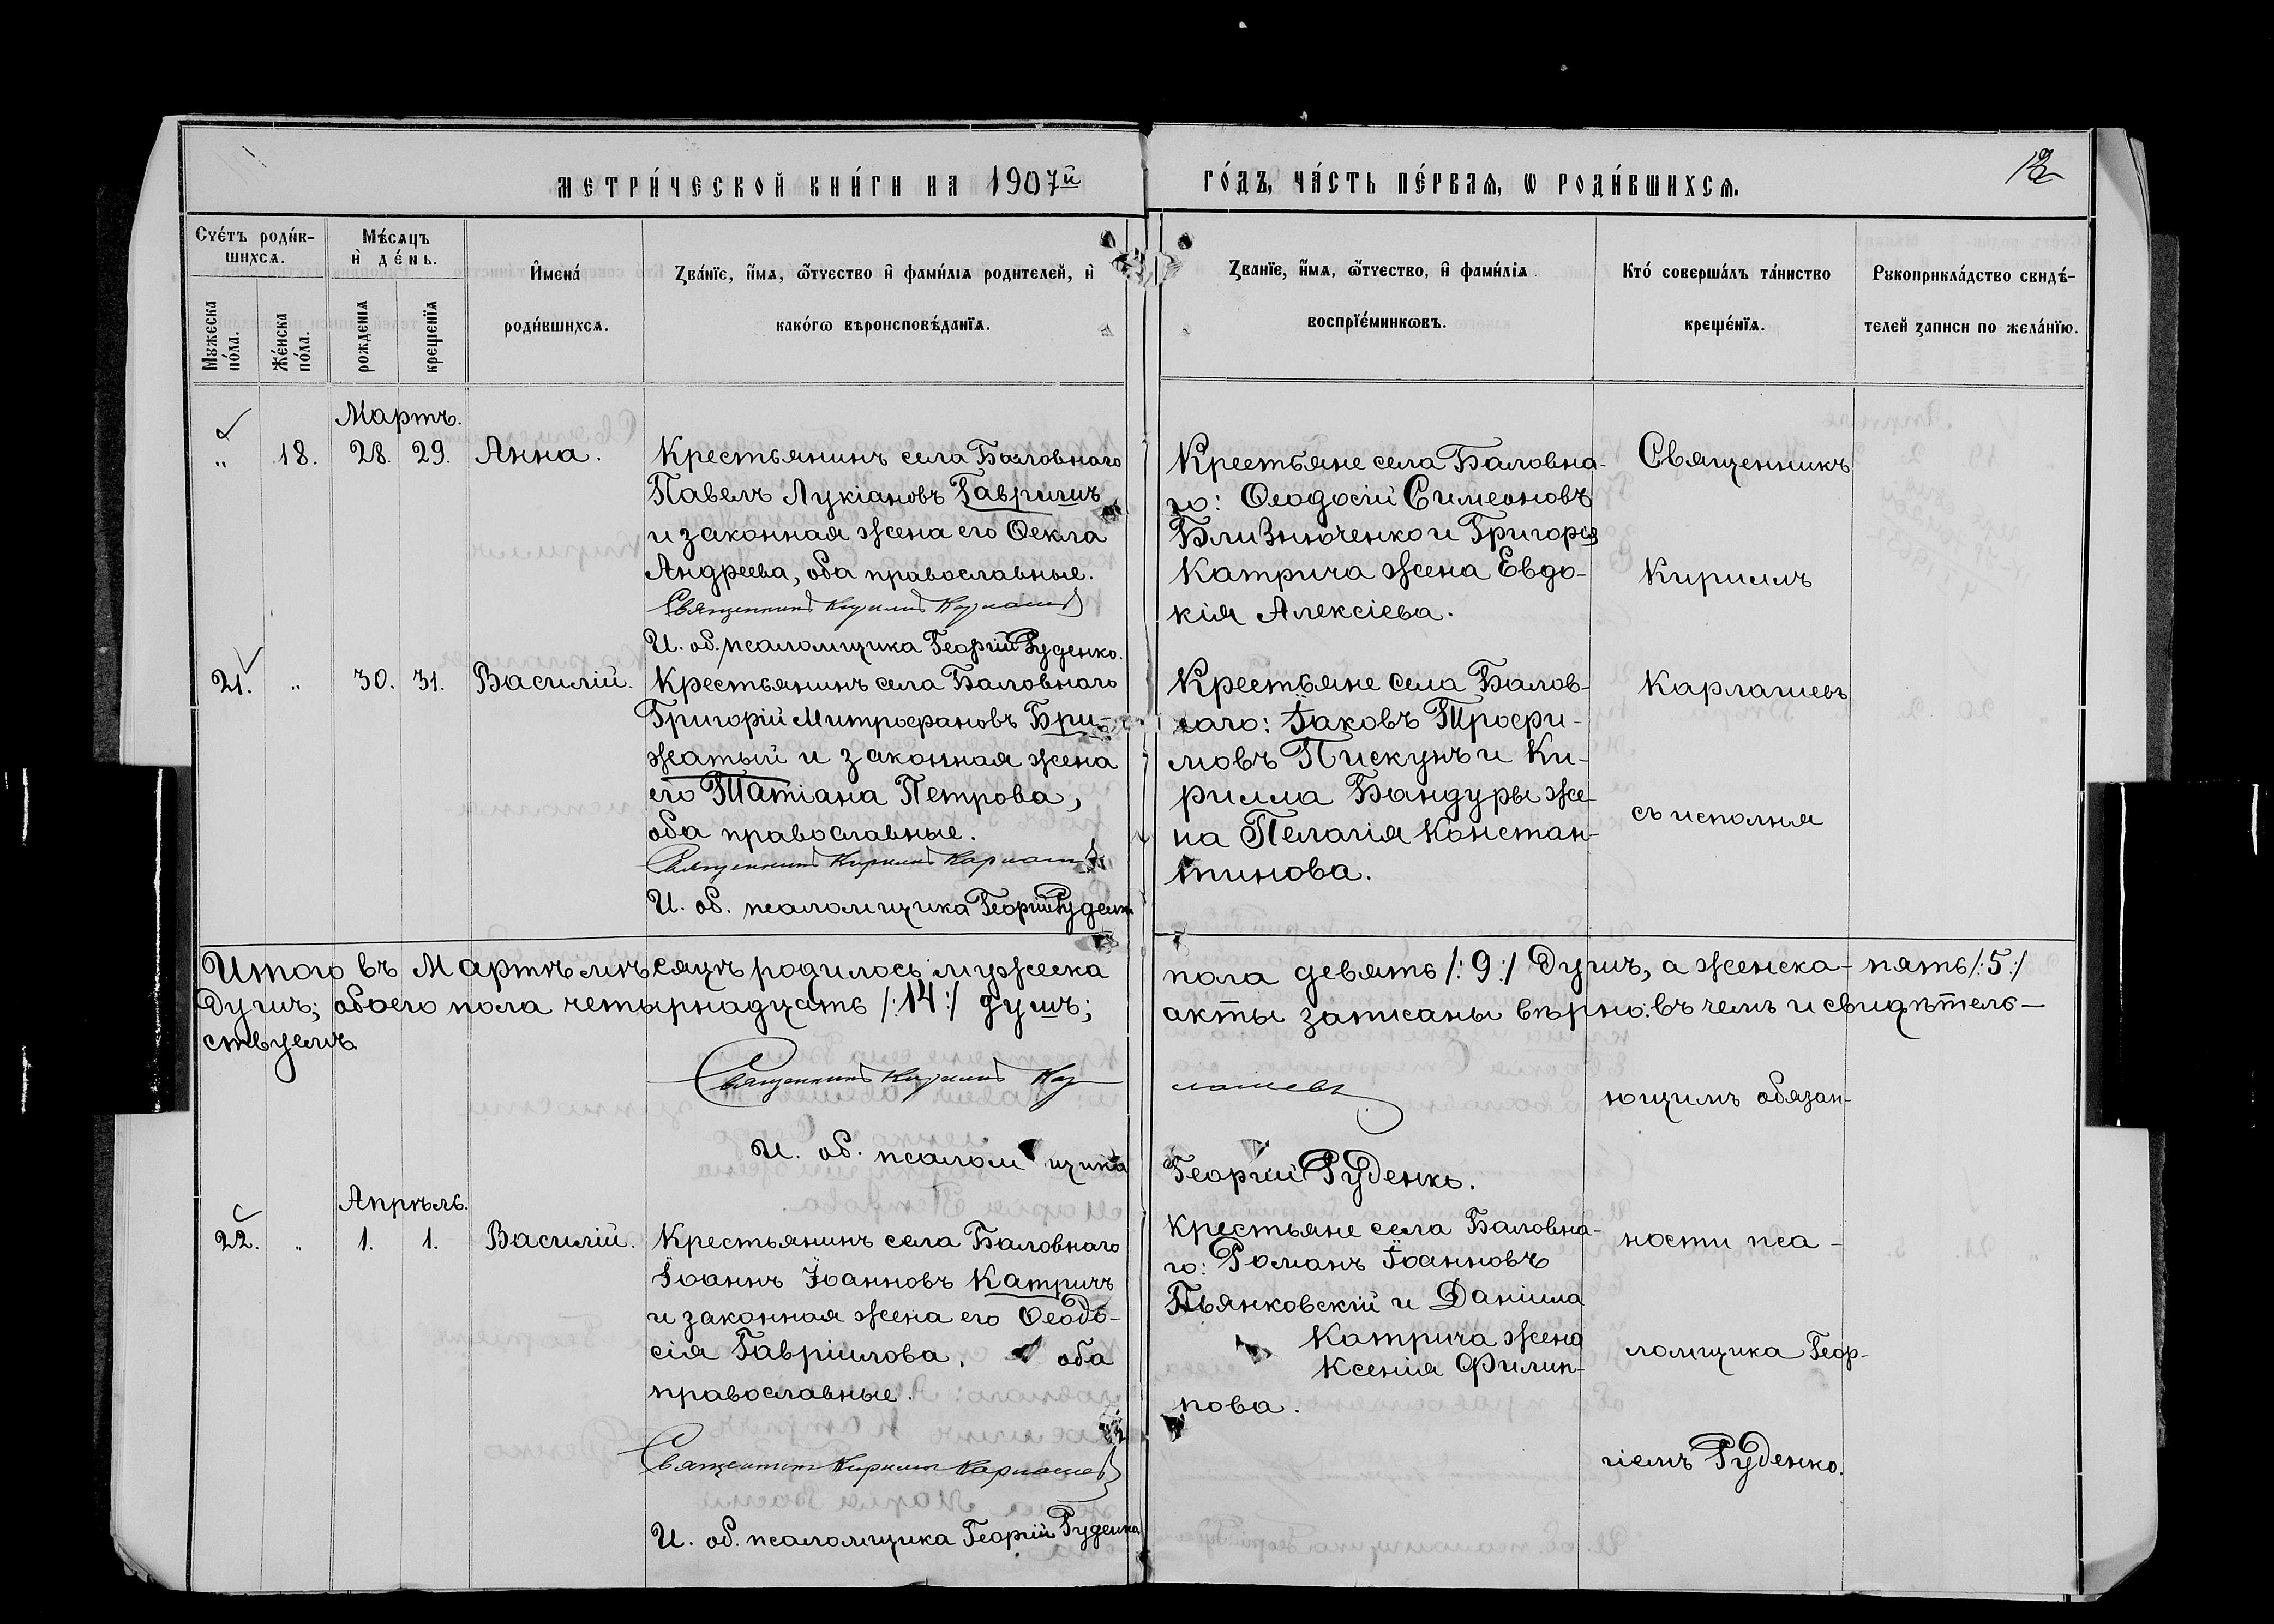 МЕТРИ́ЧЕСКОЙ КНИ́ГИ НА 1907й
ГО́ДЪ, ЧА́СТЬ ПЕ́РВАѦ, Ѡ РОДИ́ВШИХСѦ.
Сче́тъ роди́в-
шихсѧ.
Мꙋжеска
по́ла.
Же́нска
по́ла.
Мѣ́сѧцъ
и҆ де́нь.
рожденїѧ
крещенїѧ
И҆мена́
роди́вшихсѧ.
Зва́нїе, и҆́мѧ, ѻ҆́тчество и҆ фами́лїѧ родителей, и҆
како́гѡ вѣроисповѣ́данїѧ.
Зва́нїе, и҆́мѧ, ѻ҆́тчество, и҆ фами́лїѧ
воспрїе́мникѡвъ.
Кто́ соверша́лъ та́инство
креще́нїѧ.
Рꙋкоприкла́дство свидѣ́-
телей записи по жела́нїю.
Мартъ.
" 18. 28. 29. Анна.
Крестьянинъ села Баловнаго
Павелъ Лукіановъ Гавришъ
и законная жена его Ѳекла
Андреева, оба православные.
Священникъ Кириллъ Карлашевъ
И. об. псаломщика Георгій Руденко.
Крестьяне села Баловна-
го: Ѳеодосій Симеоновъ
Близнюченко и Григорія
Катрича жена Евдо-
кія Алексіева.
Священникъ
Кириллъ
21. " 30. 31. Василій.
Крестьянинъ села Баловнаго
Григорій Митрофановъ Бри-
жатый и законная жена
его Татіана Петрова,
оба православные.
Священникъ Кириллъ Карлашевъ
И. об. псаломщика Георгій Руденко
Крестьяне села Балов-
наго: Іаковъ Трофи-
мовъ Пискунъ и Ки-
рилла Бандуры же-
на Пелагія Констан-
тинова.
Карлашевъ
съ исполня
Итого въ Мартѣ мѣсяцѣ родилось мужеска пола девять /:9:/ душъ, а женска- пять /:5:/
душъ; обоего пола четырнадцать /:14:/ душъ; акты записаны вѣрно: въ чемъ и свидѣтель-
ствуемъ
Священникъ Кириллъ Карлашевъ
И. об. псаломщика Георгій Руденко.
ющимъ обязан-
Апрѣль.
22. " 1. 1. Василій.
Крестьянинъ села Баловнаго
Іоаннъ Іоанновъ Катричъ
и законная жена его Ѳеодо-
сія Гавріилова, оба
православные.
Священникъ Кириллъ Карлашевъ
И. об. псаломщика Георгій Руденко
Крестьяне села Баловна-
го: Романъ Іоанновъ
Пьянковскій и Даніила
Катрича жена
Ксенія Филип-
пова.
ности пса-
ломщика Геор-
гіемъ Руденко.